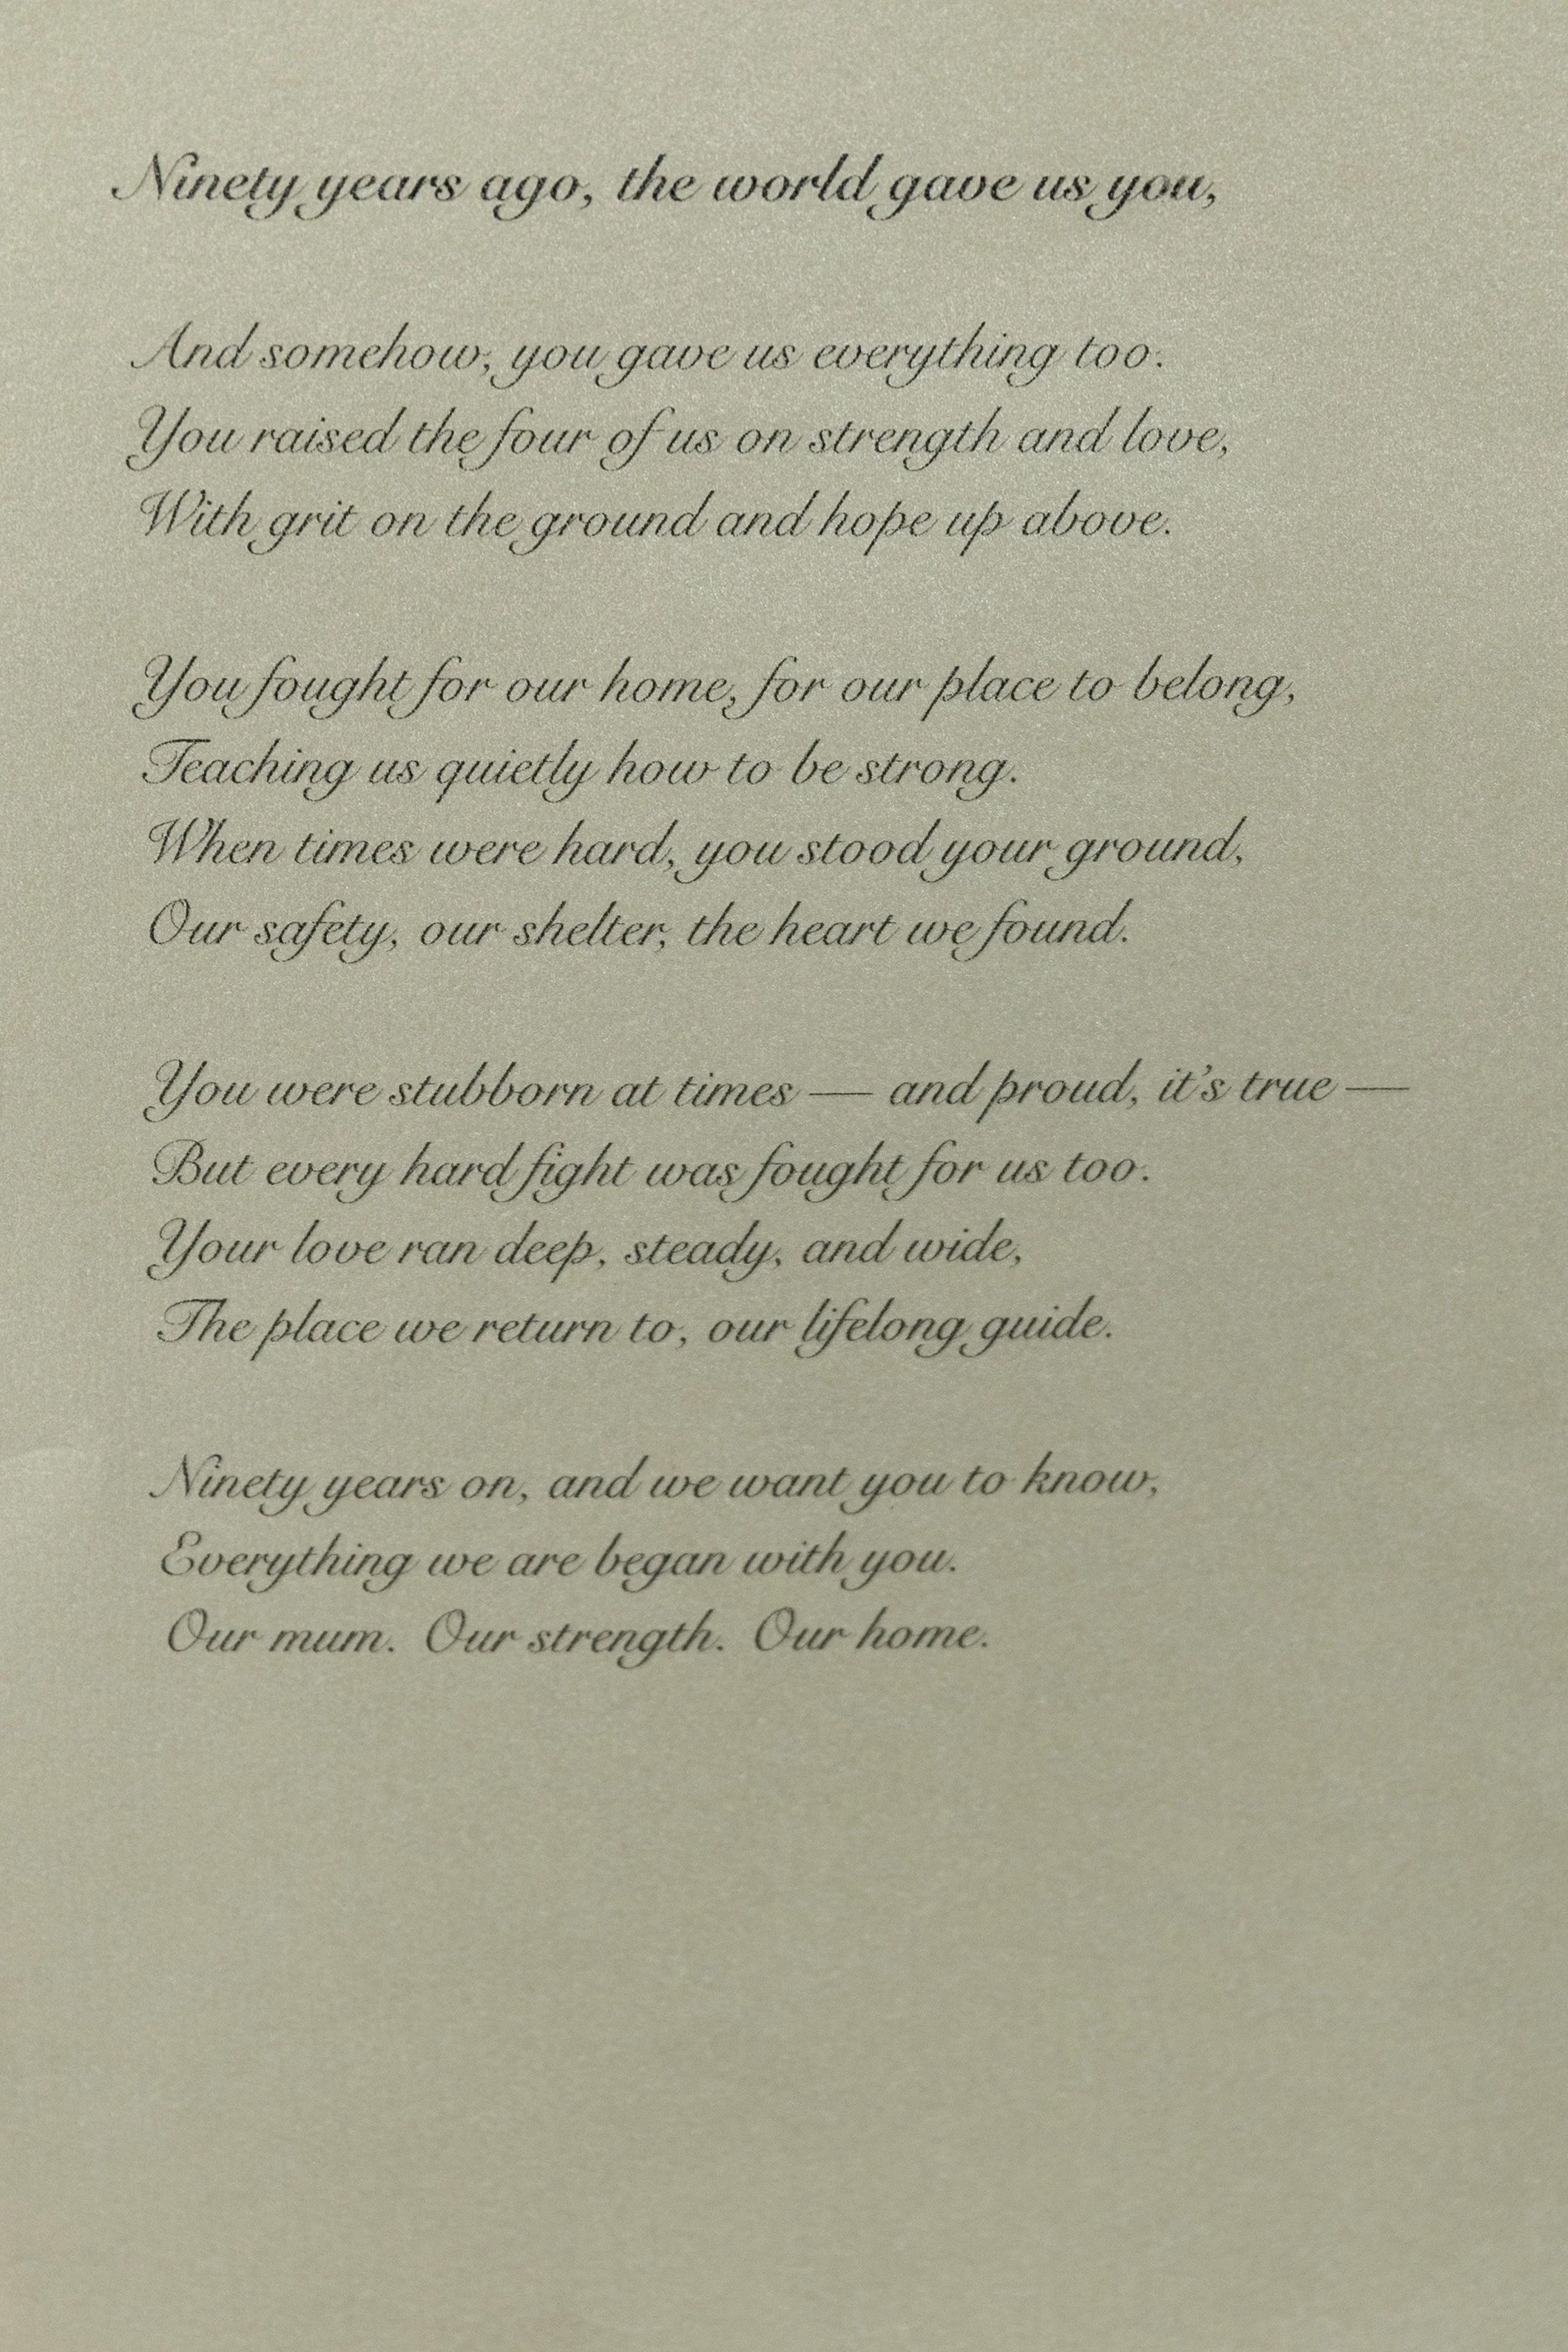 Ninety years ago, the world gave us you,
And somehow, you gave us everything too.
You raised the four of us on strength and love,
With grit on the ground and hope up above.
You fought for our home, for our place to belong,
Teaching us quietly how to be strong.
When times were hard, you stood your ground,
Our safety, our shelter, the heart we found.
You were stubborn at times — and proud, it's true —
But every hard fight was fought for us too.
Your love ran deep, steady, and wide,
The place we return to, our lifelong guide.
Ninety years on, and we want you to know,
Everything we are began with you.
Our mum. Our strength. Our home.